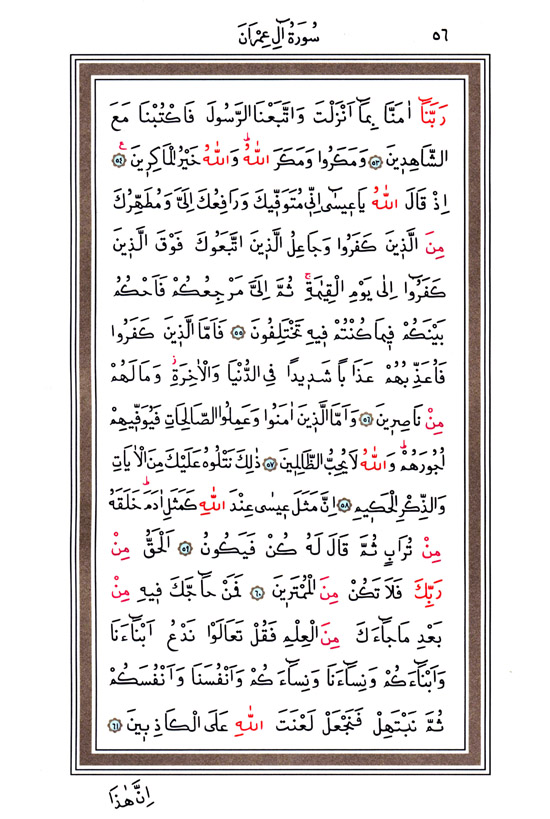 سُورَةُ آلِ عِمْرَانَ ٥٦
رَبَّنَٓا اٰمَنَّا بِمَٓا اَنْزَلْتَ وَاتَّبَعْنَا الرَّسُولَ فَاكْتُبْنَا مَعَ
الشَّاهِدٖينَ ﴿٥٣﴾ وَمَكَرُوا وَمَكَرَ اللّٰهُؕ وَاللّٰهُ خَيْرُ الْمَاكِرٖينَࣖ ﴿٥٤﴾
اِذْ قَالَ اللّٰهُ يَاعٖيسٰٓى اِنّٖي مُتَوَفّٖيكَ وَرَافِعُكَ اِلَيَّ وَمُطَهِّرُكَ
مِنَ الَّذٖينَ كَفَرُوا وَجَاعِلُ الَّذٖينَ اتَّبَعُوكَ فَوْقَ الَّذٖينَ
كَفَرُٓوا اِلٰى يَوْمِ الْقِيٰمَةِۚ ثُمَّ اِلَيَّ مَرْجِعُكُمْ فَاَحْكُمُ
بَيْنَكُمْ فٖيمَا كُنْتُمْ فٖيهِ تَخْتَلِفُونَ ﴿٥٥﴾ فَاَمَّا الَّذٖينَ كَفَرُوا
فَاُعَذِّبُهُمْ عَذَابًا شَدٖيدًا فِي الدُّنْيَا وَالْاٰخِرَةِؗ وَمَا لَهُمْ
مِنْ نَاصِرٖينَ ﴿٥٦﴾ وَاَمَّا الَّذٖينَ اٰمَنُوا وَعَمِلُوا الصَّالِحَاتِ فَيُوَفّٖيهِمْ
اُجُورَهُمْؕ وَاللّٰهُ لَا يُحِبُّ الظَّالِمٖينَ ﴿٥٧﴾ ذٰلِكَ نَتْلُوهُ عَلَيْكَ مِنَ الْاٰيَاتِ
وَالذِّكْرِ الْحَكٖيمِ ﴿٥٨﴾ اِنَّ مَثَلَ عٖيسٰى عِنْدَ اللّٰهِ كَمَثَلِ اٰدَمَؕ خَلَقَهُ
مِنْ تُرَابٍ ثُمَّ قَالَ لَهُ كُنْ فَيَكُونُ ﴿٥٩﴾ اَلْحَقُّ مِنْ
رَبِّكَ فَلَا تَكُنْ مِنَ الْمُمْتَرٖينَ ﴿٦٠﴾ فَمَنْ حَٓاجَّكَ فٖيهِ مِنْ
بَعْدِ مَا جَٓاءَكَ مِنَ الْعِلْمِ فَقُلْ تَعَالَوْا نَدْعُ اَبْنَٓاءَنَا
وَاَبْنَٓاءَكُمْ وَنِسَٓاءَنَا وَنِسَٓاءَكُمْ وَاَنْفُسَنَا وَاَنْفُسَكُمْ
ثُمَّ نَبْتَهِلْ فَنَجْعَلْ لَعْنَتَ اللّٰهِ عَلَى الْكَاذِبٖينَ ﴿٦١﴾
اِنَّ هٰذَا